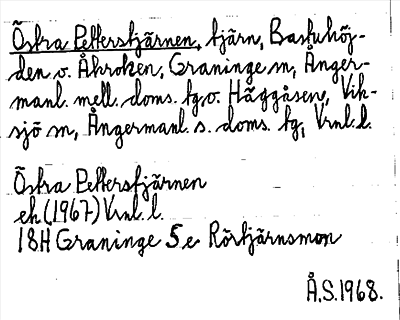 Östra Petterstjärnen, tjärn, Bastuhöj-
den o. Åkroken, Graninge sn, Ånger-
manl. mell. doms. tg o. Häggåsen, Vik-
sjö sn, Ångermanl. s. doms. tg, Vrnl. l.
Östra Pettersstjärnen
ek (1967) Vrnl. l.
18H Graninge 5e Rörtjärnsmon
Å.S. 1968.